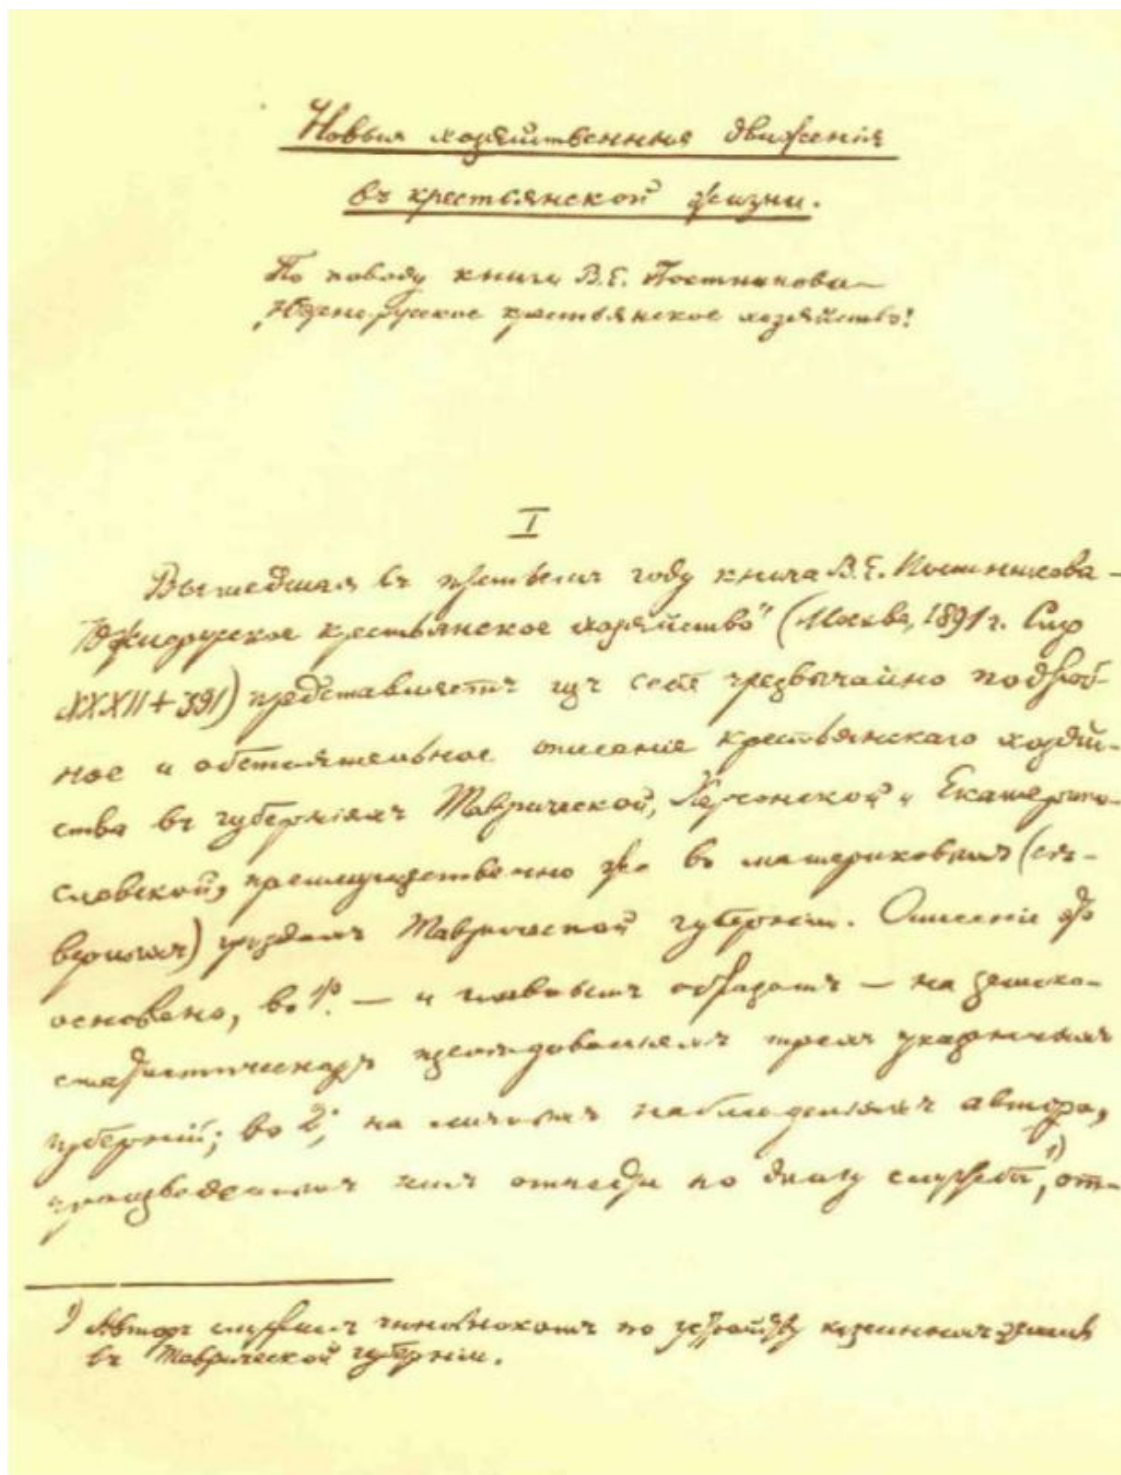 Новыя хозяйственныя движенія
въ крестьянской жизни.
По поводу книги В.Е. Постникова —
„Южно-русское крестьянское хозяйство“
I
Вышедшая въ третьемъ году книга В.Е. Постникова —
„Южнорусское крестьянское хозяйство“ (Москва, 1891 г. Стр
XXXII + 391) представляетъ изъ себя чрезвычайно подроб-
ное и обстоятельное описаніе крестьянскаго хозяй-
ства въ губерніяхъ Таврической, Херсонской и Екатерино-
славской, преимущественно же въ материковыхъ (сѣ-
верныхъ) уѣздахъ Таврической губерніи. Описаніе это
основано, во 1х. — и главнымъ образомъ — на земско-
статистическихъ изслѣдованіяхъ трехъ указанныхъ
губерній; во 2х, на личныхъ наблюденіяхъ автора,
произведенныхъ имъ отчасти по долгу службы 1), от-
1) Авторъ служилъ чиновникомъ по устройству казенныхъ земель
въ Таврической губерніи.